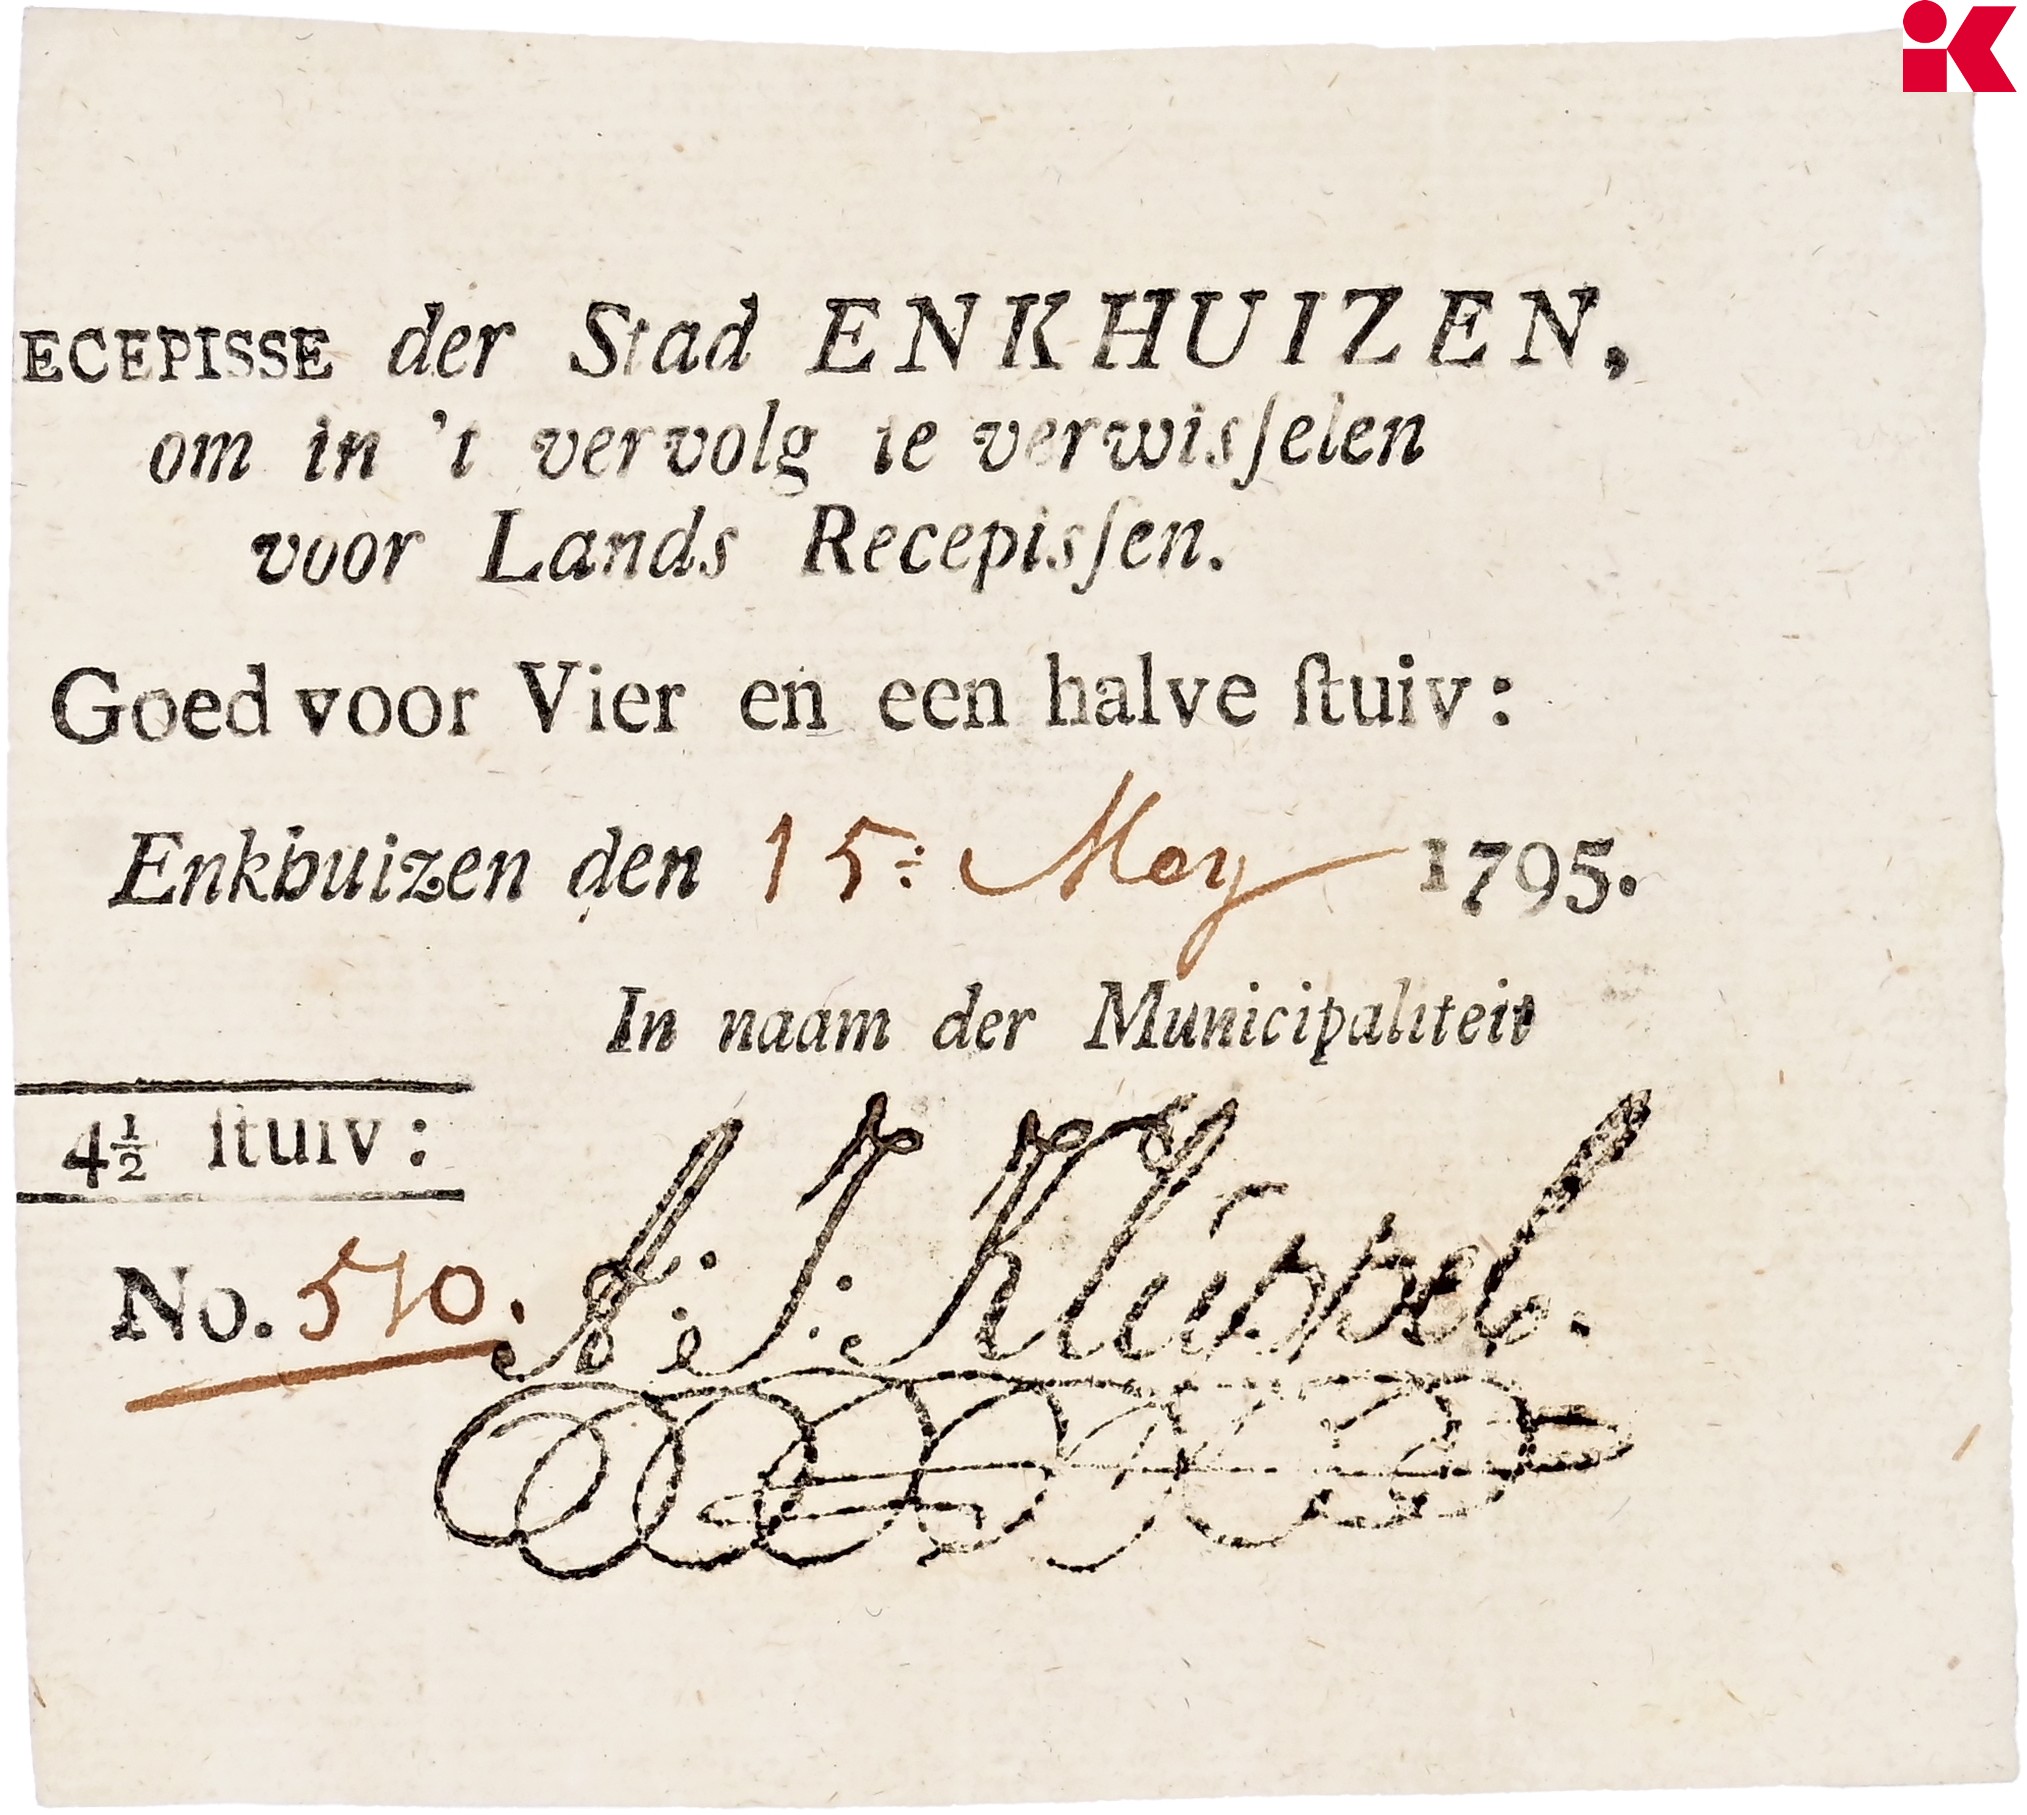 ECEPISSE der Stad ENKHUIZEN,
om in 't vervolg te verwisſelen
voor Lands Recepisſen.
Goed voor Vier en een halve ſtuiv:
Enkhuizen den 15: Mey 1795.
In naam der Municipaliteit
4½ ſtuiv:
No. 510.
A: J: Klüppel.